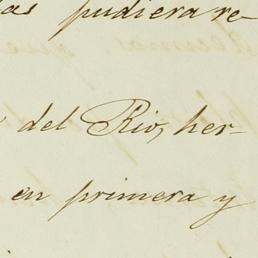 as pudiera re
del Rio, her-
en primera y